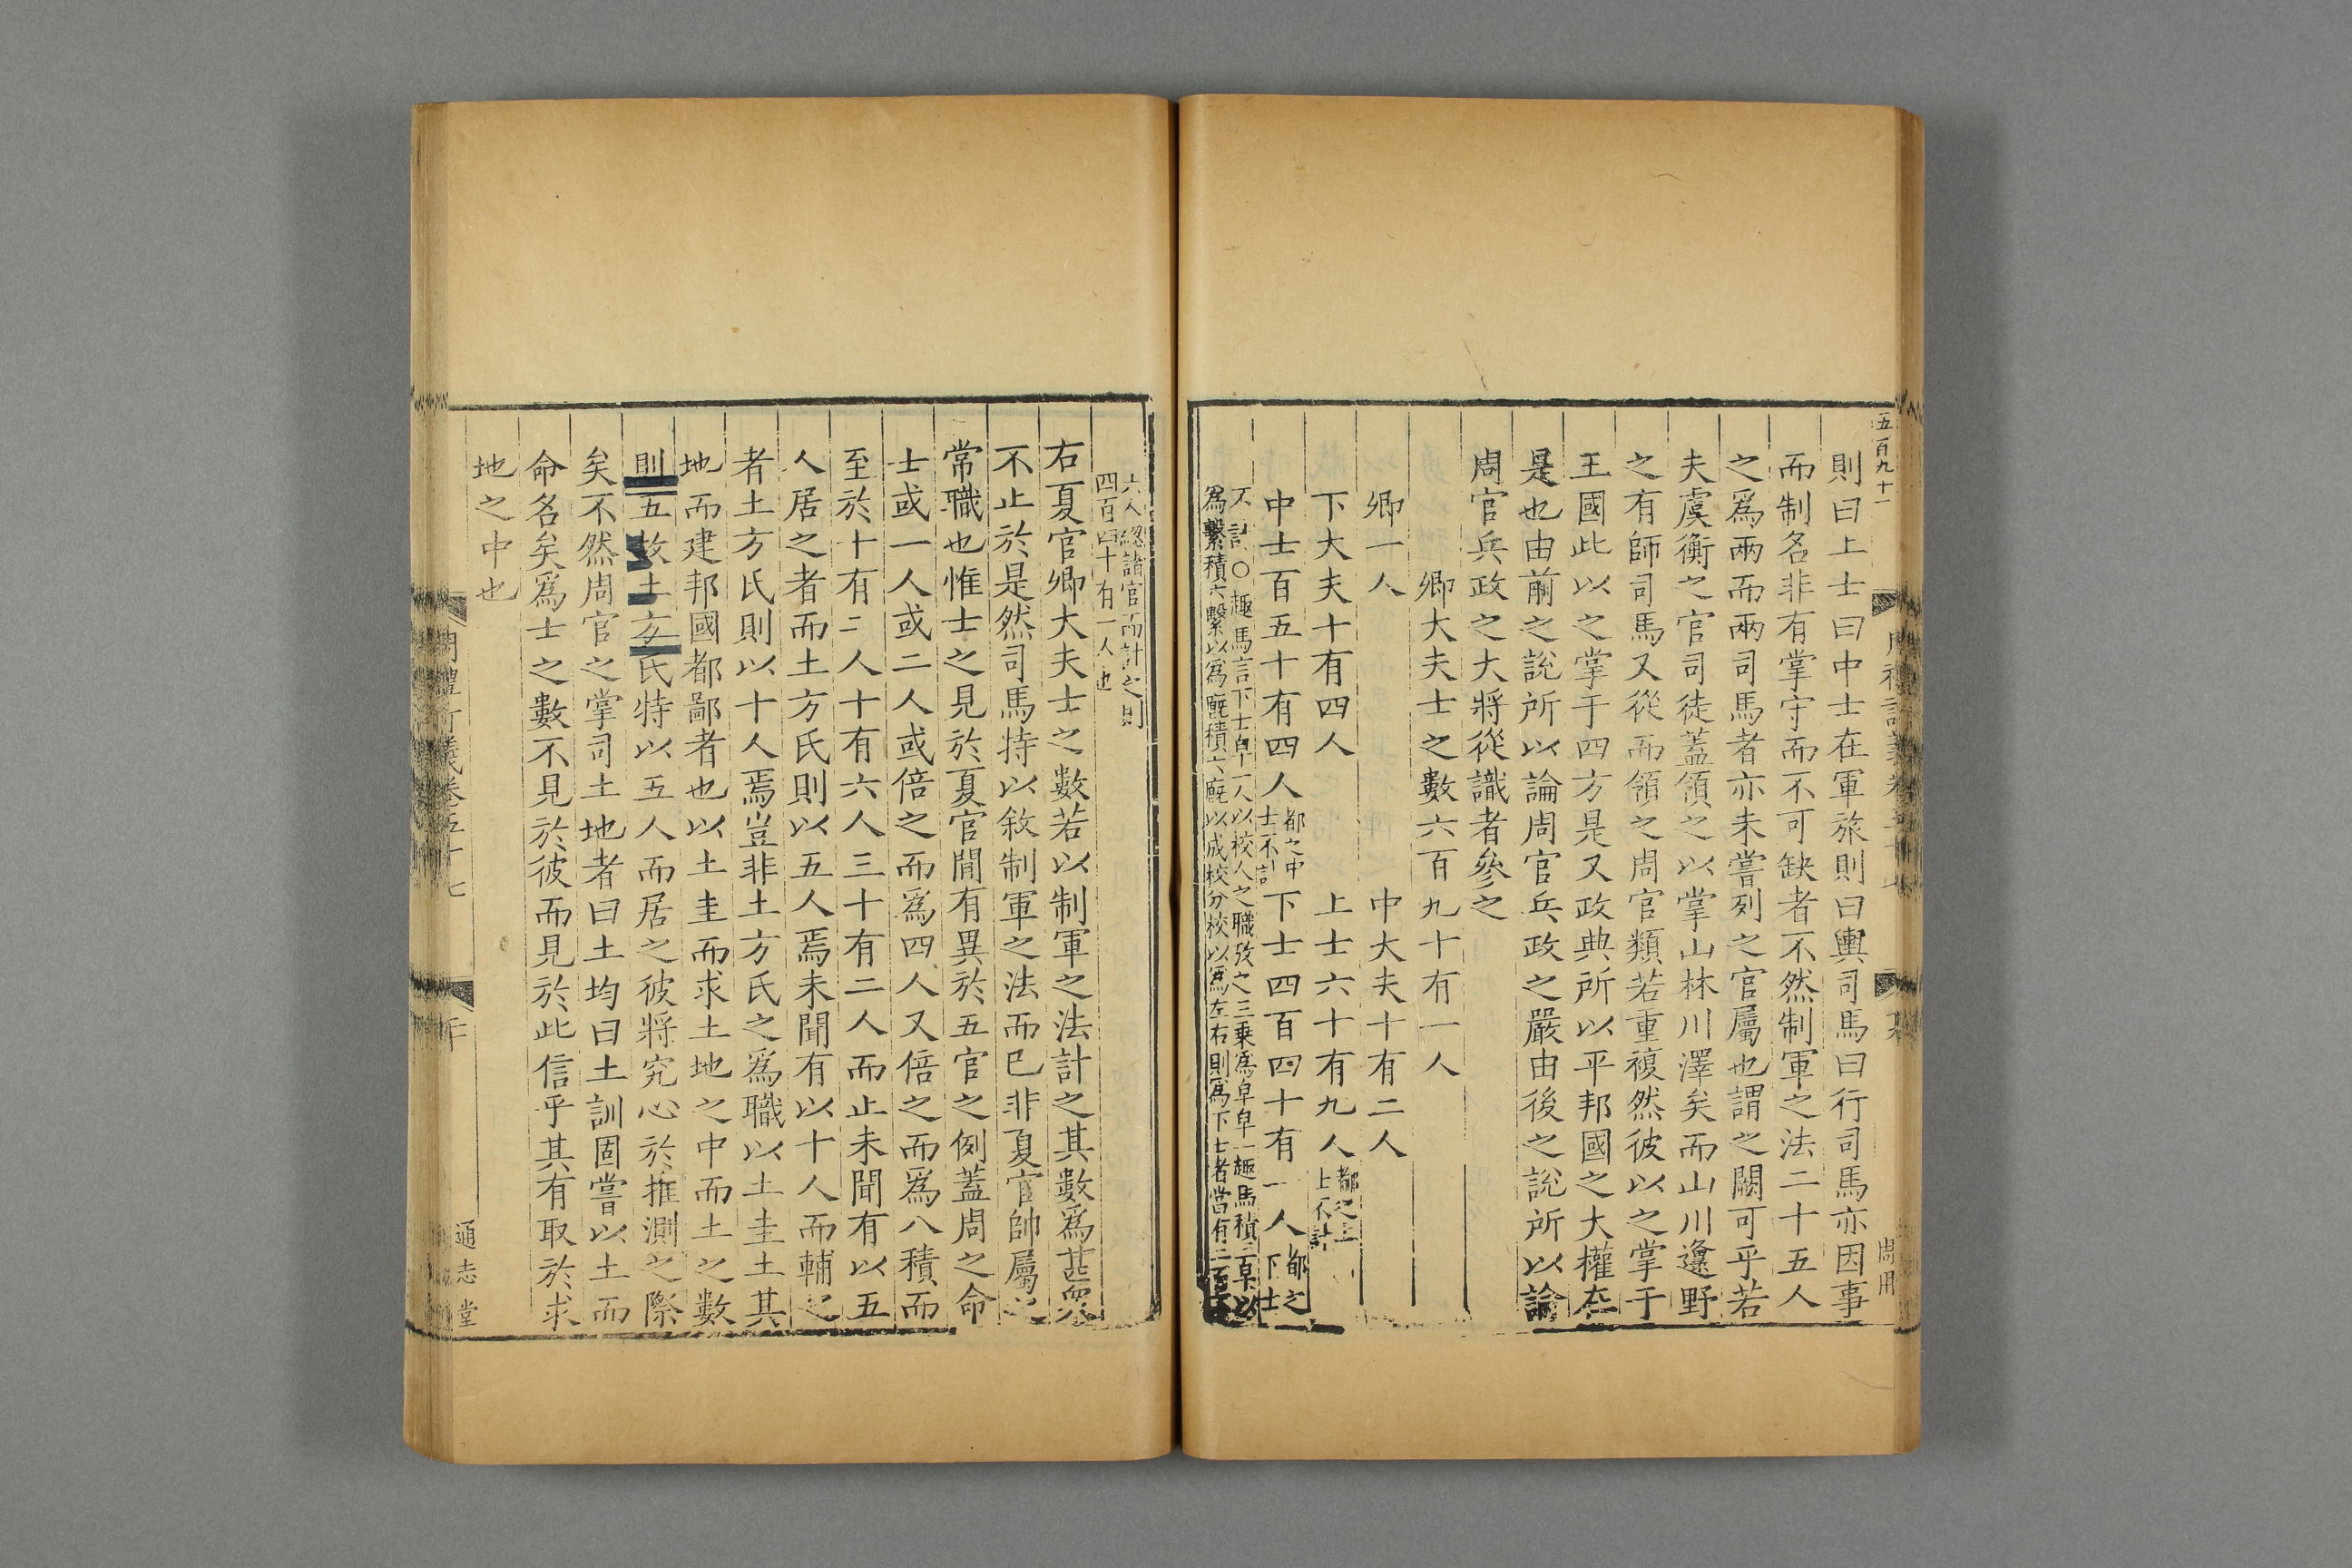 五百九十一
則曰上士曰中士在軍旅則曰輿司馬曰行司馬亦因事
而制名非有掌守而不可缺者不然制軍之法二十五人
之爲兩而兩司馬者亦未嘗列之官屬也謂之闕可乎若
夫虞衡之官司徒蓋領之以掌山林川澤矣而山川邍野
之有師司馬又從而領之周官類若重複然彼以之掌于
王國此以之掌于四方是又政典所以平邦國之大權在
是也由前之說所以論周官兵政之嚴由後之說所以論
周官兵政之大將從識者參之
卿大夫士之數六百九十有一人
卿一人 中大夫十有二人
下大夫十有四人 上士六十有九人都之上士不計
中士百五十有四人都之中士不計 下士四百四十有一人都之下士
不計○趣馬言下士皁一人以校人之職攷之三乗爲皁皁一趣馬積三皁以
爲繫積六繫以爲廐積六廐以成校分校以爲左右則爲下士者當有二百
六人總諸官而計之則
四百四十有一人也
右夏官卿大夫士之數若以制軍之法計之其數爲甚衆
不止於是然司馬特以敘制軍之法而已非夏官帥屬之
常職也惟士之見於夏官閒有異於五官之例蓋周之命
士或一人或二人或倍之而爲四人又倍之而爲八積而
至於十有二人十有六人三十有二人而止未聞有以五
人居之者而土方氏則以五人焉未聞有以十人而輔之
者土方氏則以十人焉豈非土方氏之爲職以土圭土其
地而建邦國都鄙者也以土圭而求土地之中而土之數
則五故土方氏特以五人而居之彼將究心於推測之際
矣不然周官之掌司土地者曰土均曰土訓固嘗以土而
命名矣爲士之數不見於彼而見於此信乎其有取於求
地之中也
周禮訂義卷五十七
通志堂